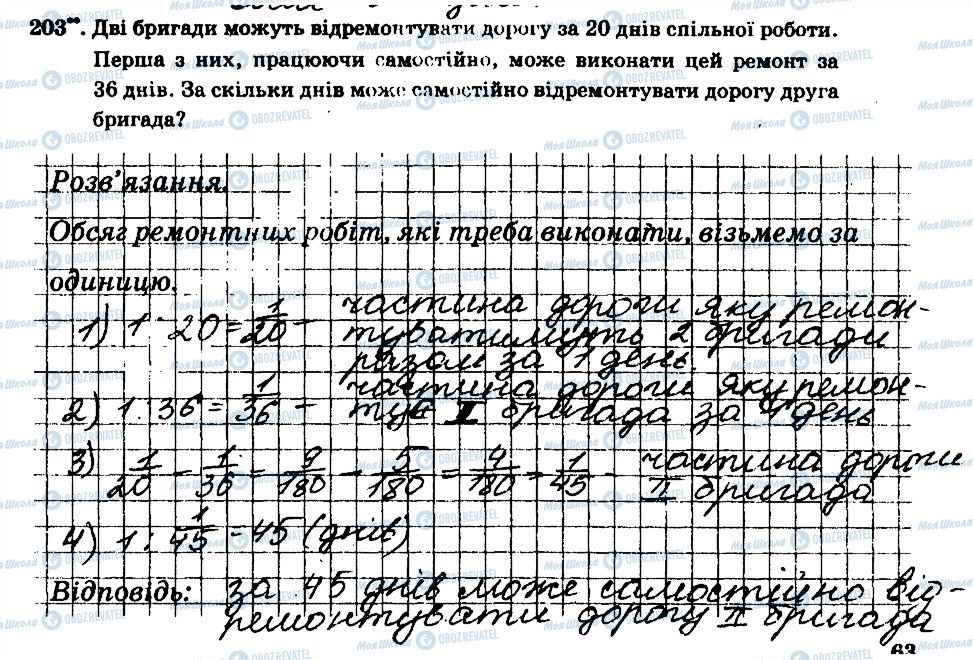 203**. Дві бригади можуть відремонтувати дорогу за 20 днів спільної роботи.
Перша з них, працюючи самостійно, може виконати цей ремонт за
36 днів. За скільки днів може самостійно відремонтувати дорогу друга
бригада?
Розв'язання.
Обсяг ремонтних робіт, які треба виконати, візьмемо за
одиницю.
1) 1 : 20 = 1/20 – частина дороги яку ремон-
туватимуть 2 бригади
разом за 1 день.
2) 1 : 36 = 1/36 – частина дороги яку ремон-
тує I бригада за 1 день
3) 1/20 – 1/36 = 9/180 – 5/180 = 4/180 = 1/45 – частина дороги
II бригада
4) 1 : 1/45 = 45 (днів)
Відповідь: за 45 днів може самостійно від-
ремонтувати дорогу II бригада
63